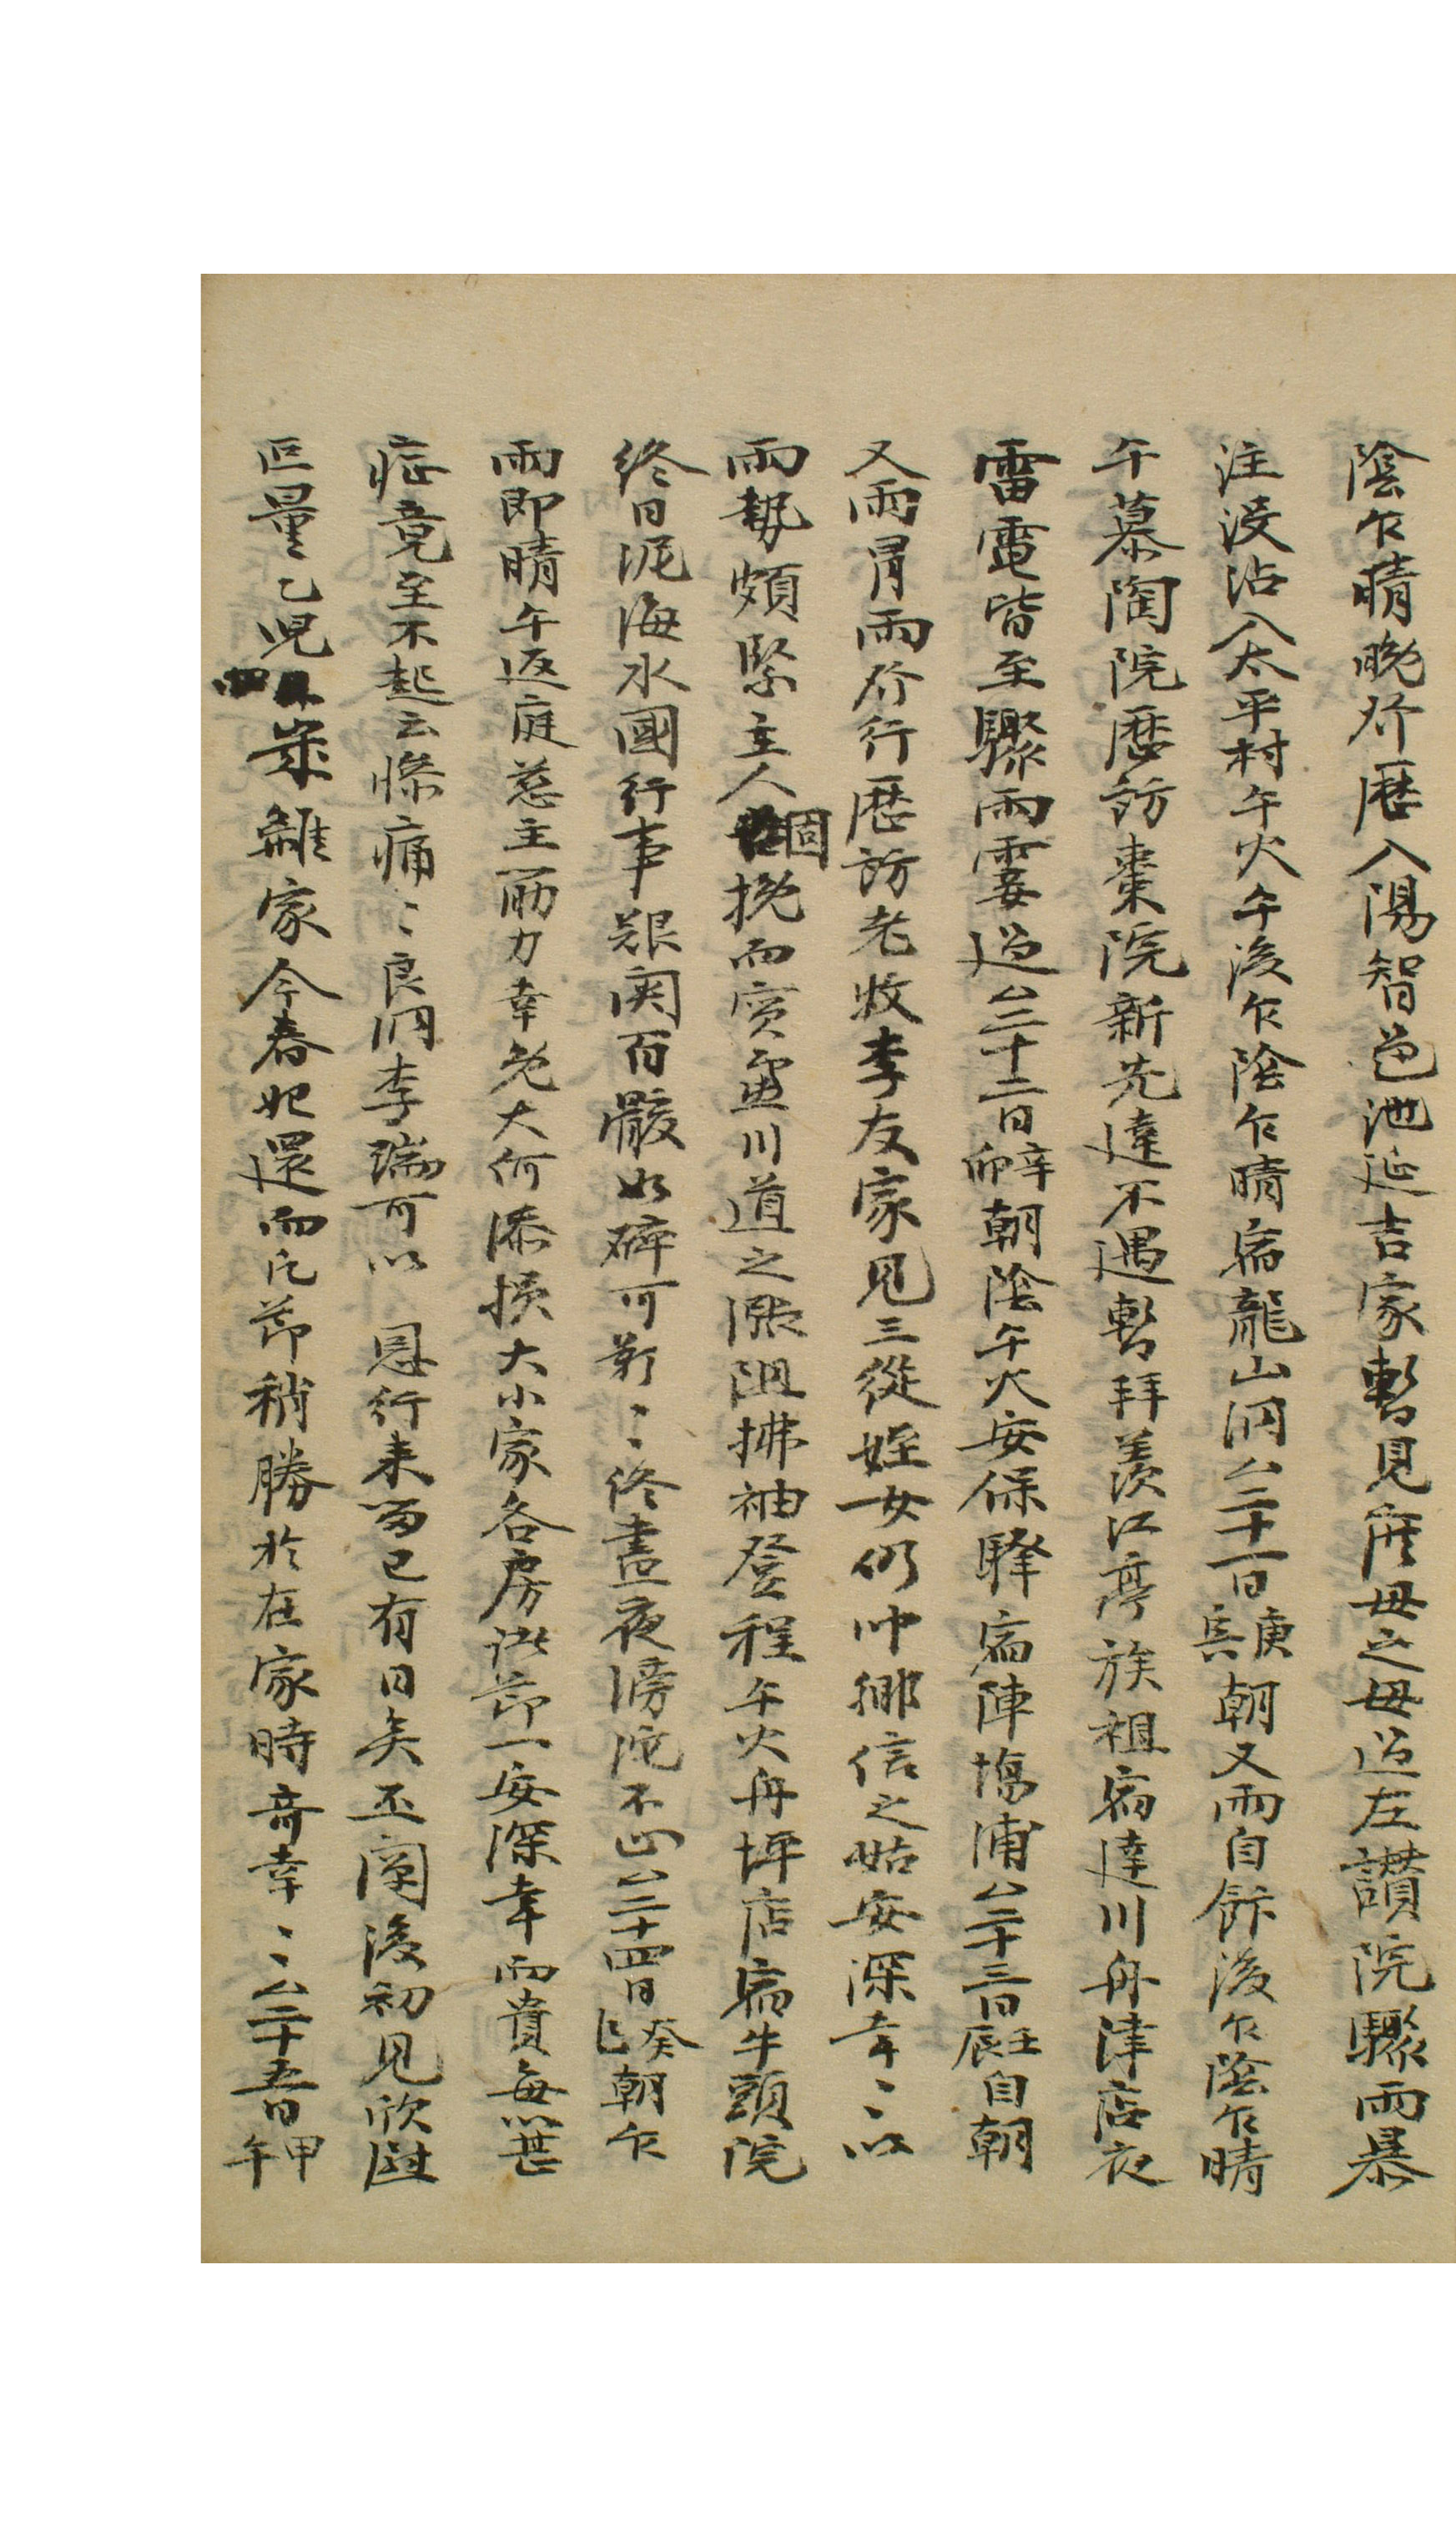 陰乍晴晩發歷入陽智邑池延吉家暫見庶母之母過左讃院驟雨暴
注沒沾入太平村午火午後乍陰乍晴宿龍山洞厶二十一日庚寅朝又雨自餘後乍陰乍晴
午慕陶院歷訪棗院新先達不遇暫拜羨江亭族祖宿達川舟津店夜
雷電皆至驟雨霎過厶二十二日辛卯朝陰午火安保驛宿陣塲浦厶二十三日壬辰自朝
又雨冒雨發行歷訪老收李友家見三從姪女仍呌鄕信之姑安深幸〻以
雨勢頗緊主人固挽而實畫川道之漲阻拂袖登程午火舟坪店宿牛頭院
終日泥海水國行事艱関百骸如碎可歎〻終晝夜滂沱不止厶二十四日癸巳朝乍
雨即晴午返庭慈主筋力幸免大何添損大小家各房諸節一安深幸而賁每葚
症竟至不起云慘痛〻良洞李瑞可以 恩行来留已有日矣丕闋後初見欣慰
叵量乙児四朱離家今春妃還而凡節稍勝於在家時奇幸〻厶二十五日甲午